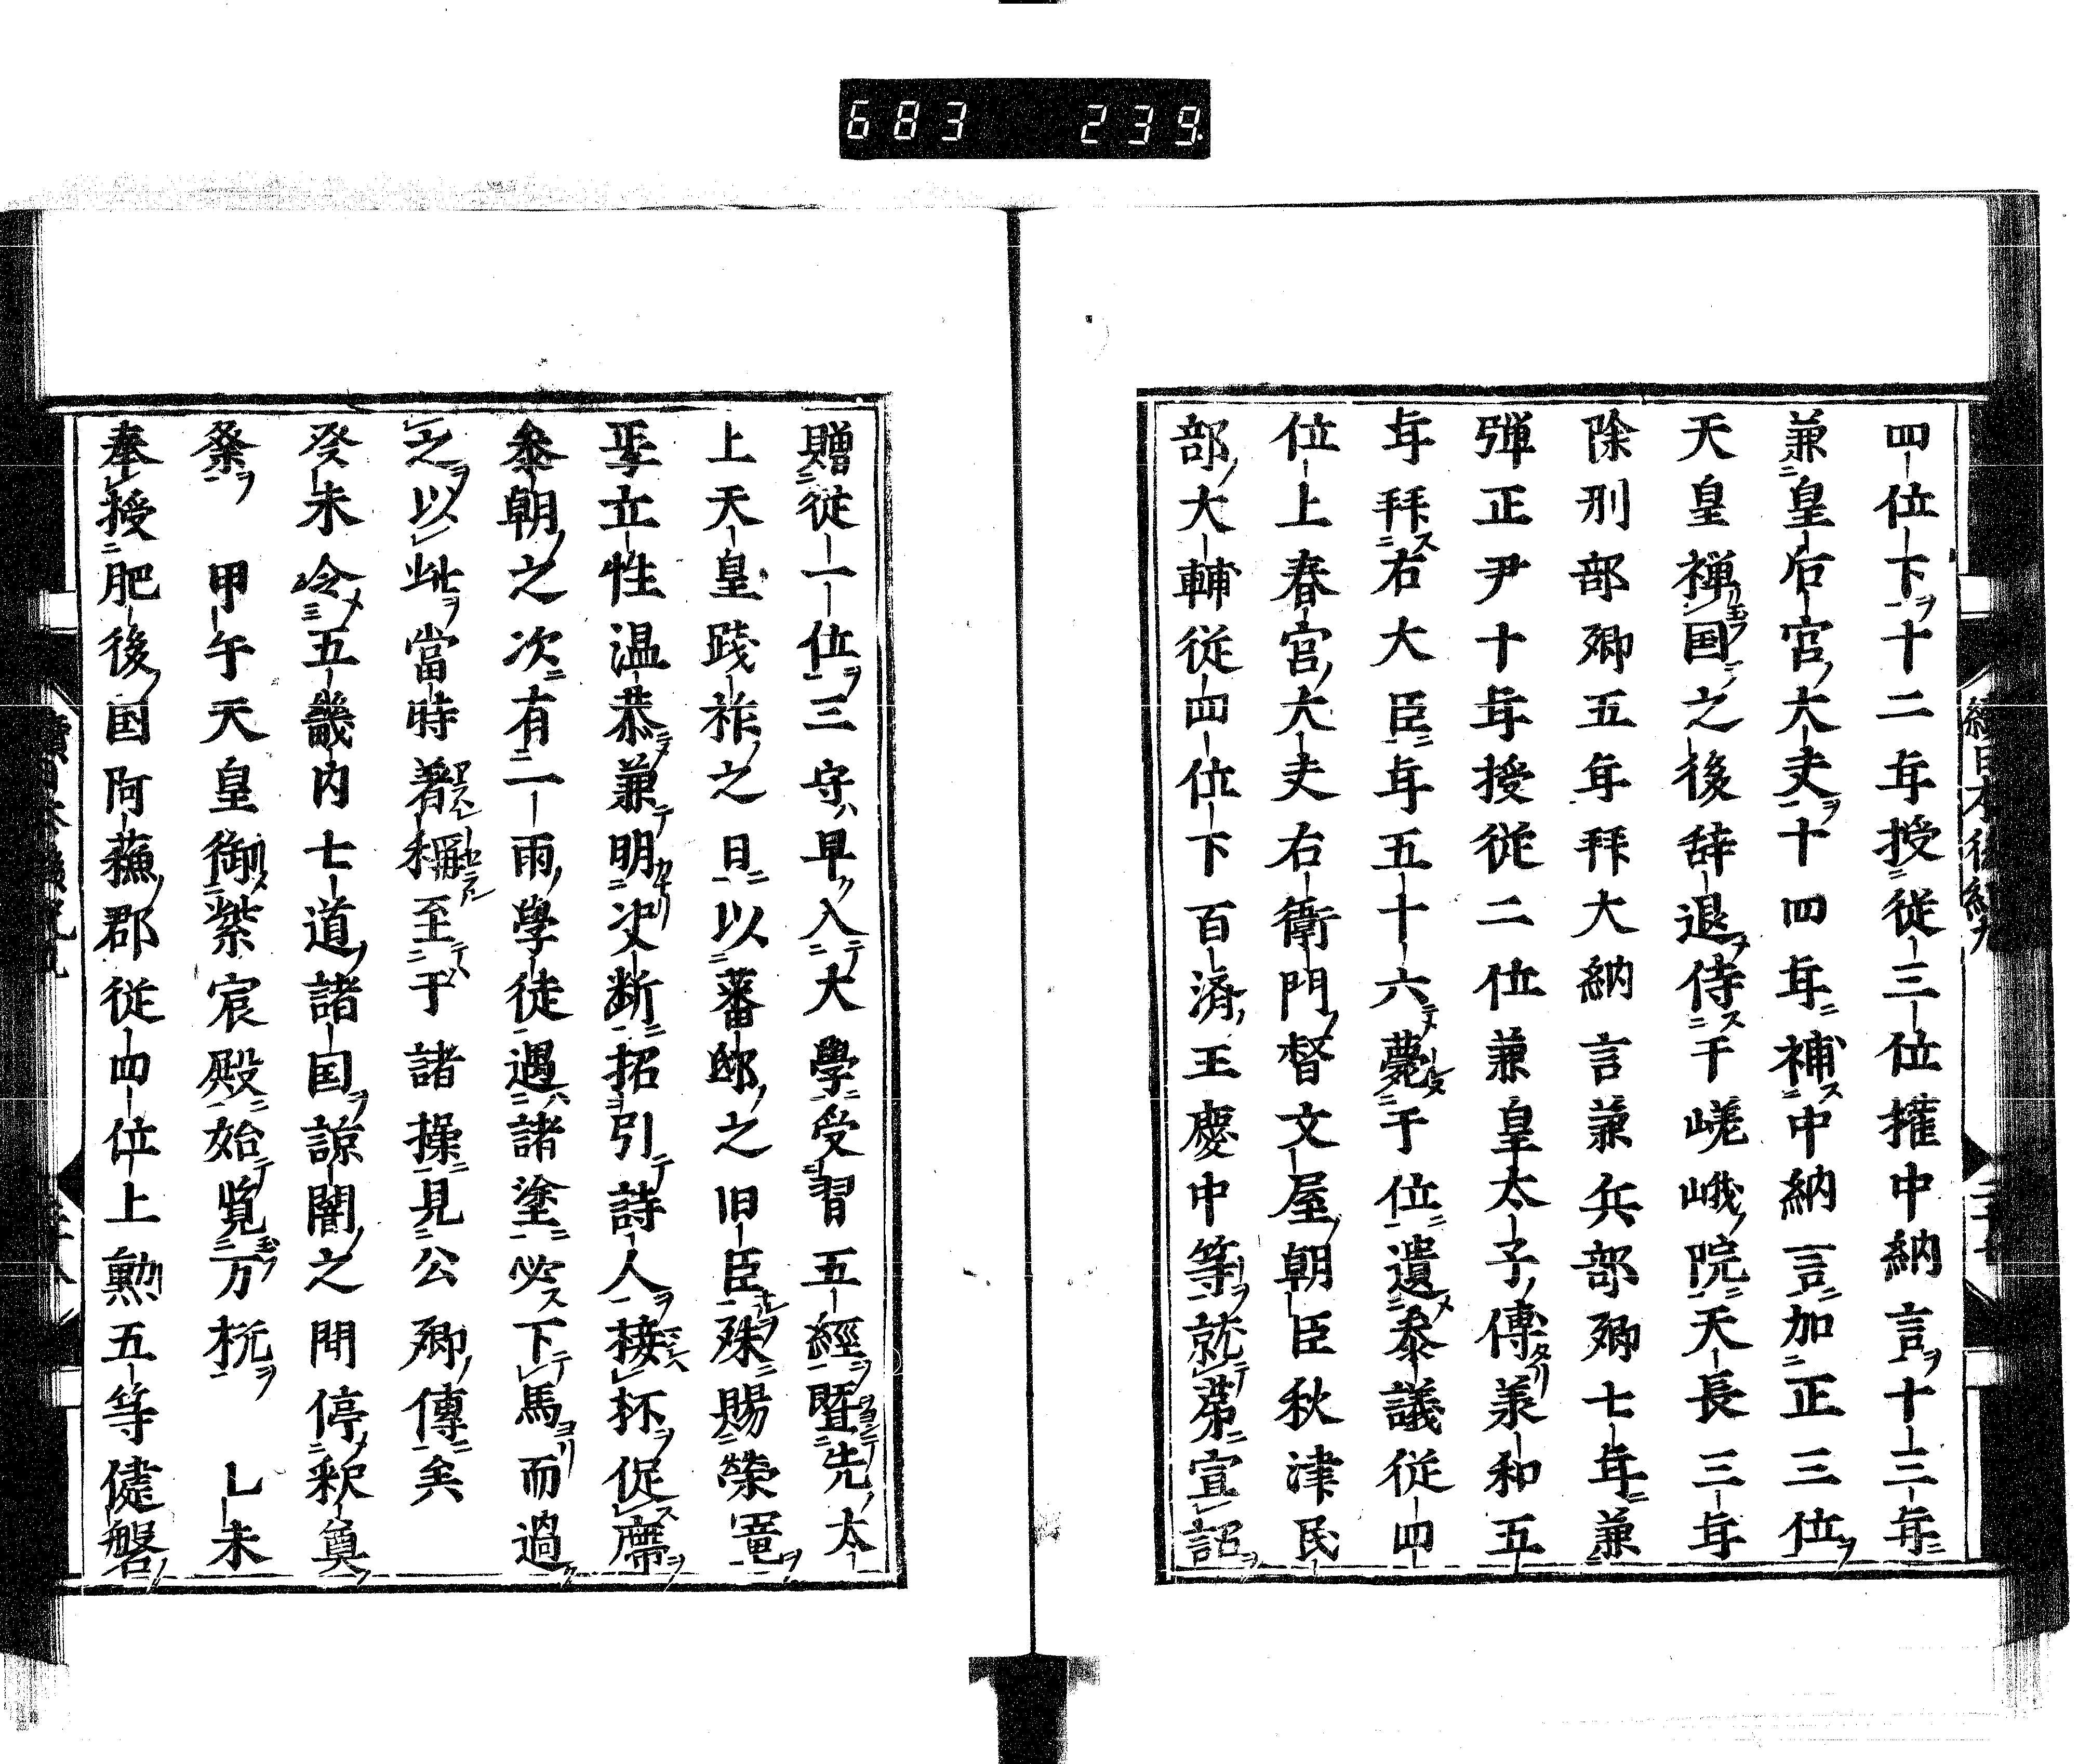 683 239
四位下十二年授従三位権中納言十三年
兼皇后宮大夫十四年補中納言加正三位
天皇禅国之後辞退侍于嵯峨院天長三年
除刑部卿五年拜大納言兼兵部卿七年兼
弾正尹十年授従二位兼皇太子傅羕和五
年拜右大臣年五十六薨于位遣叅議従四
位上春宮大夫右衛門督文屋朝臣秋津民
部大輔従四位下百済王慶中等就苐宣詔
贈従一位三守早入大學受習五經曁先太
上天皇践祚之日以蕃邸之旧臣殊賜榮寵
焉立性温恭兼明决断招引詩人接杯促席
叅朝之次有一二雨學徒遇諸塗必下馬而過
之以此當時著稱至于諸操見公卿傳矣
癸未令五畿内七道諸国諒闇之間停釈奠
祭 甲午天皇御紫宸殿始覧万機 乚未
奉授肥後国阿蘓郡従四位上勲五等健磐